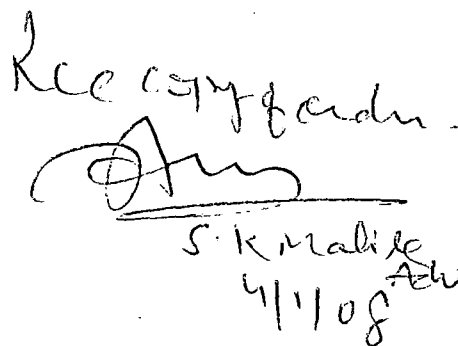 Rec copy of order.
S. K Malik
Adv
4/1/08